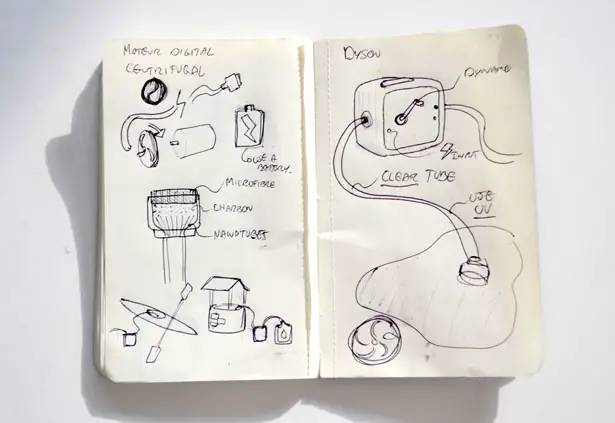 MOTEUR DIGITAL
CENTRIFUGAL
COUSE A
BATTERY
MICROFIBRE
CHARBON
NANOTUBES
DYSON
DYNAMO
INPUT
CLEAR TUBE
USE
UV